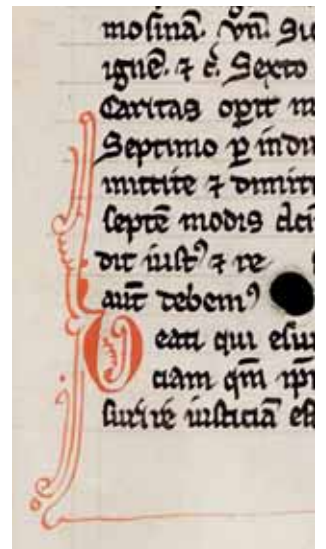 mosinā. Vn̄. Sic
ignē. ⁊ c̄. Sexto
Caritas op̄it m
Septimo ꝑ indu
mittite ⁊ dimitt
septē modis dci
dit iust᷒ ⁊ re
aut̄ debem᷒
Beati qui esur
ciam qm̄ ip̄i
surire iusticiā es